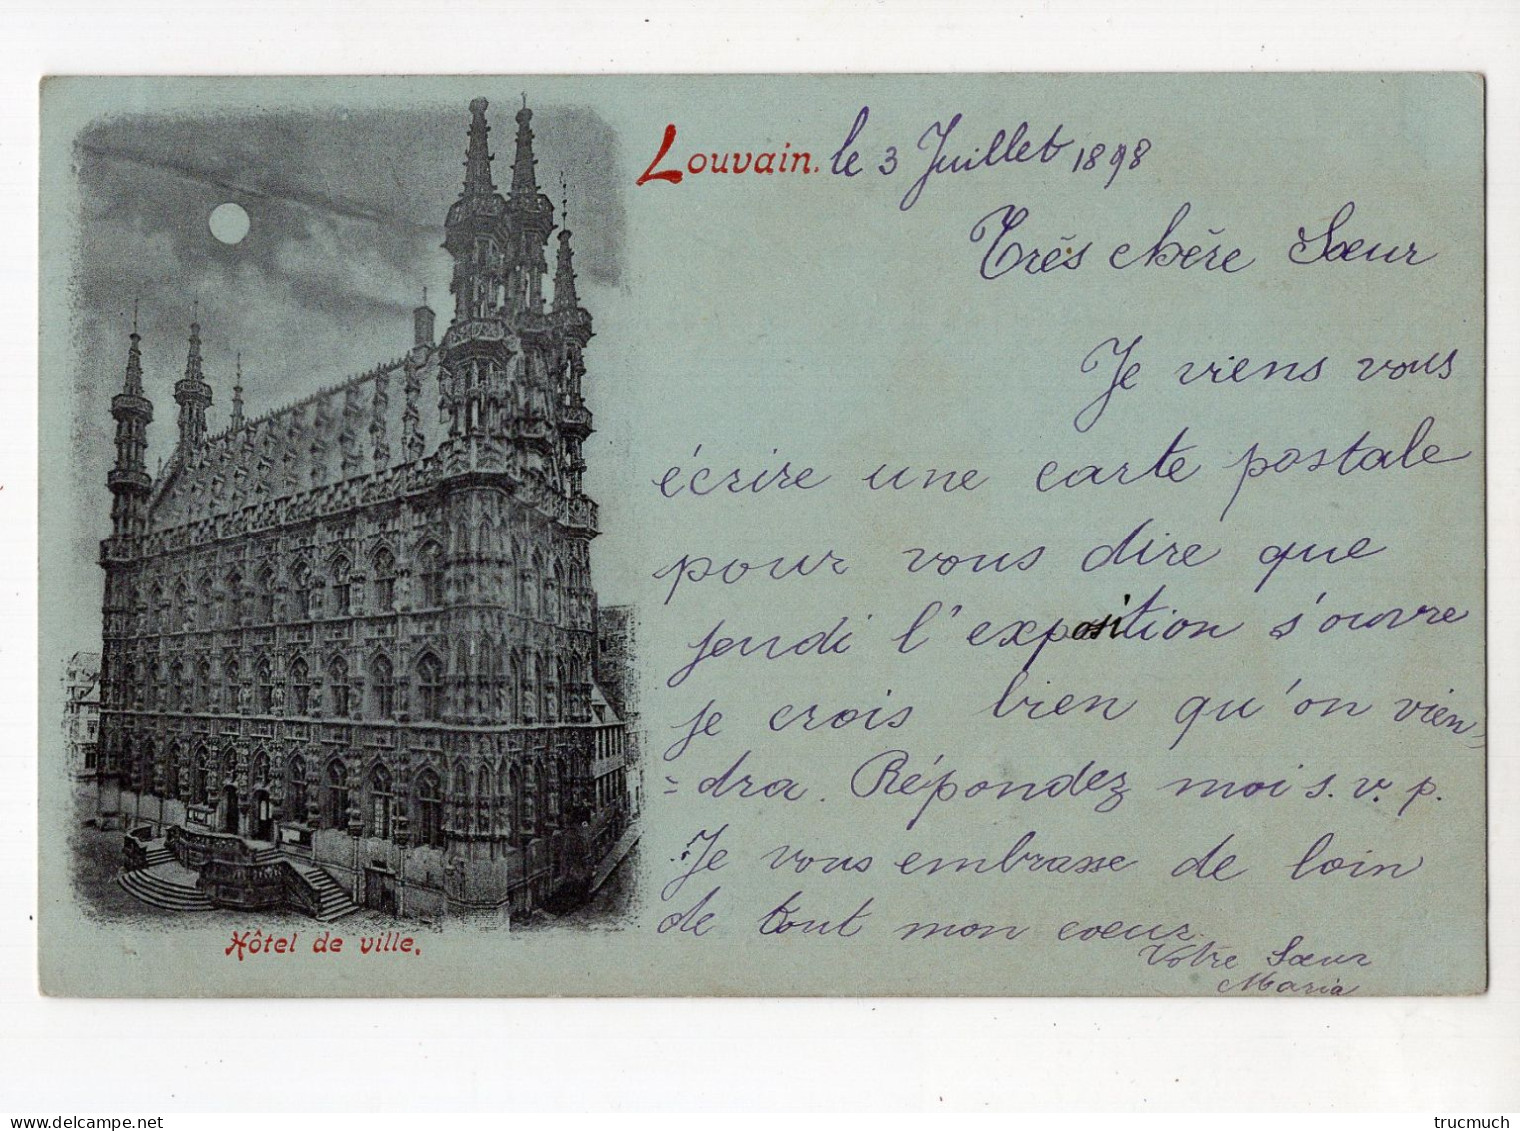 Louvain. le 3 Juillet 1898
Très chère Sœur
Je viens vous
écrire une carte postale
pour vous dire que
jeudi l'exposition s'ouvre
je crois bien qu'on vien=
=dra. Répondez moi s. v. p.
Je vous embrasse de loin
de tout mon coeur.
Votre Sœur
Maria
Hôtel de ville.
trucmuch